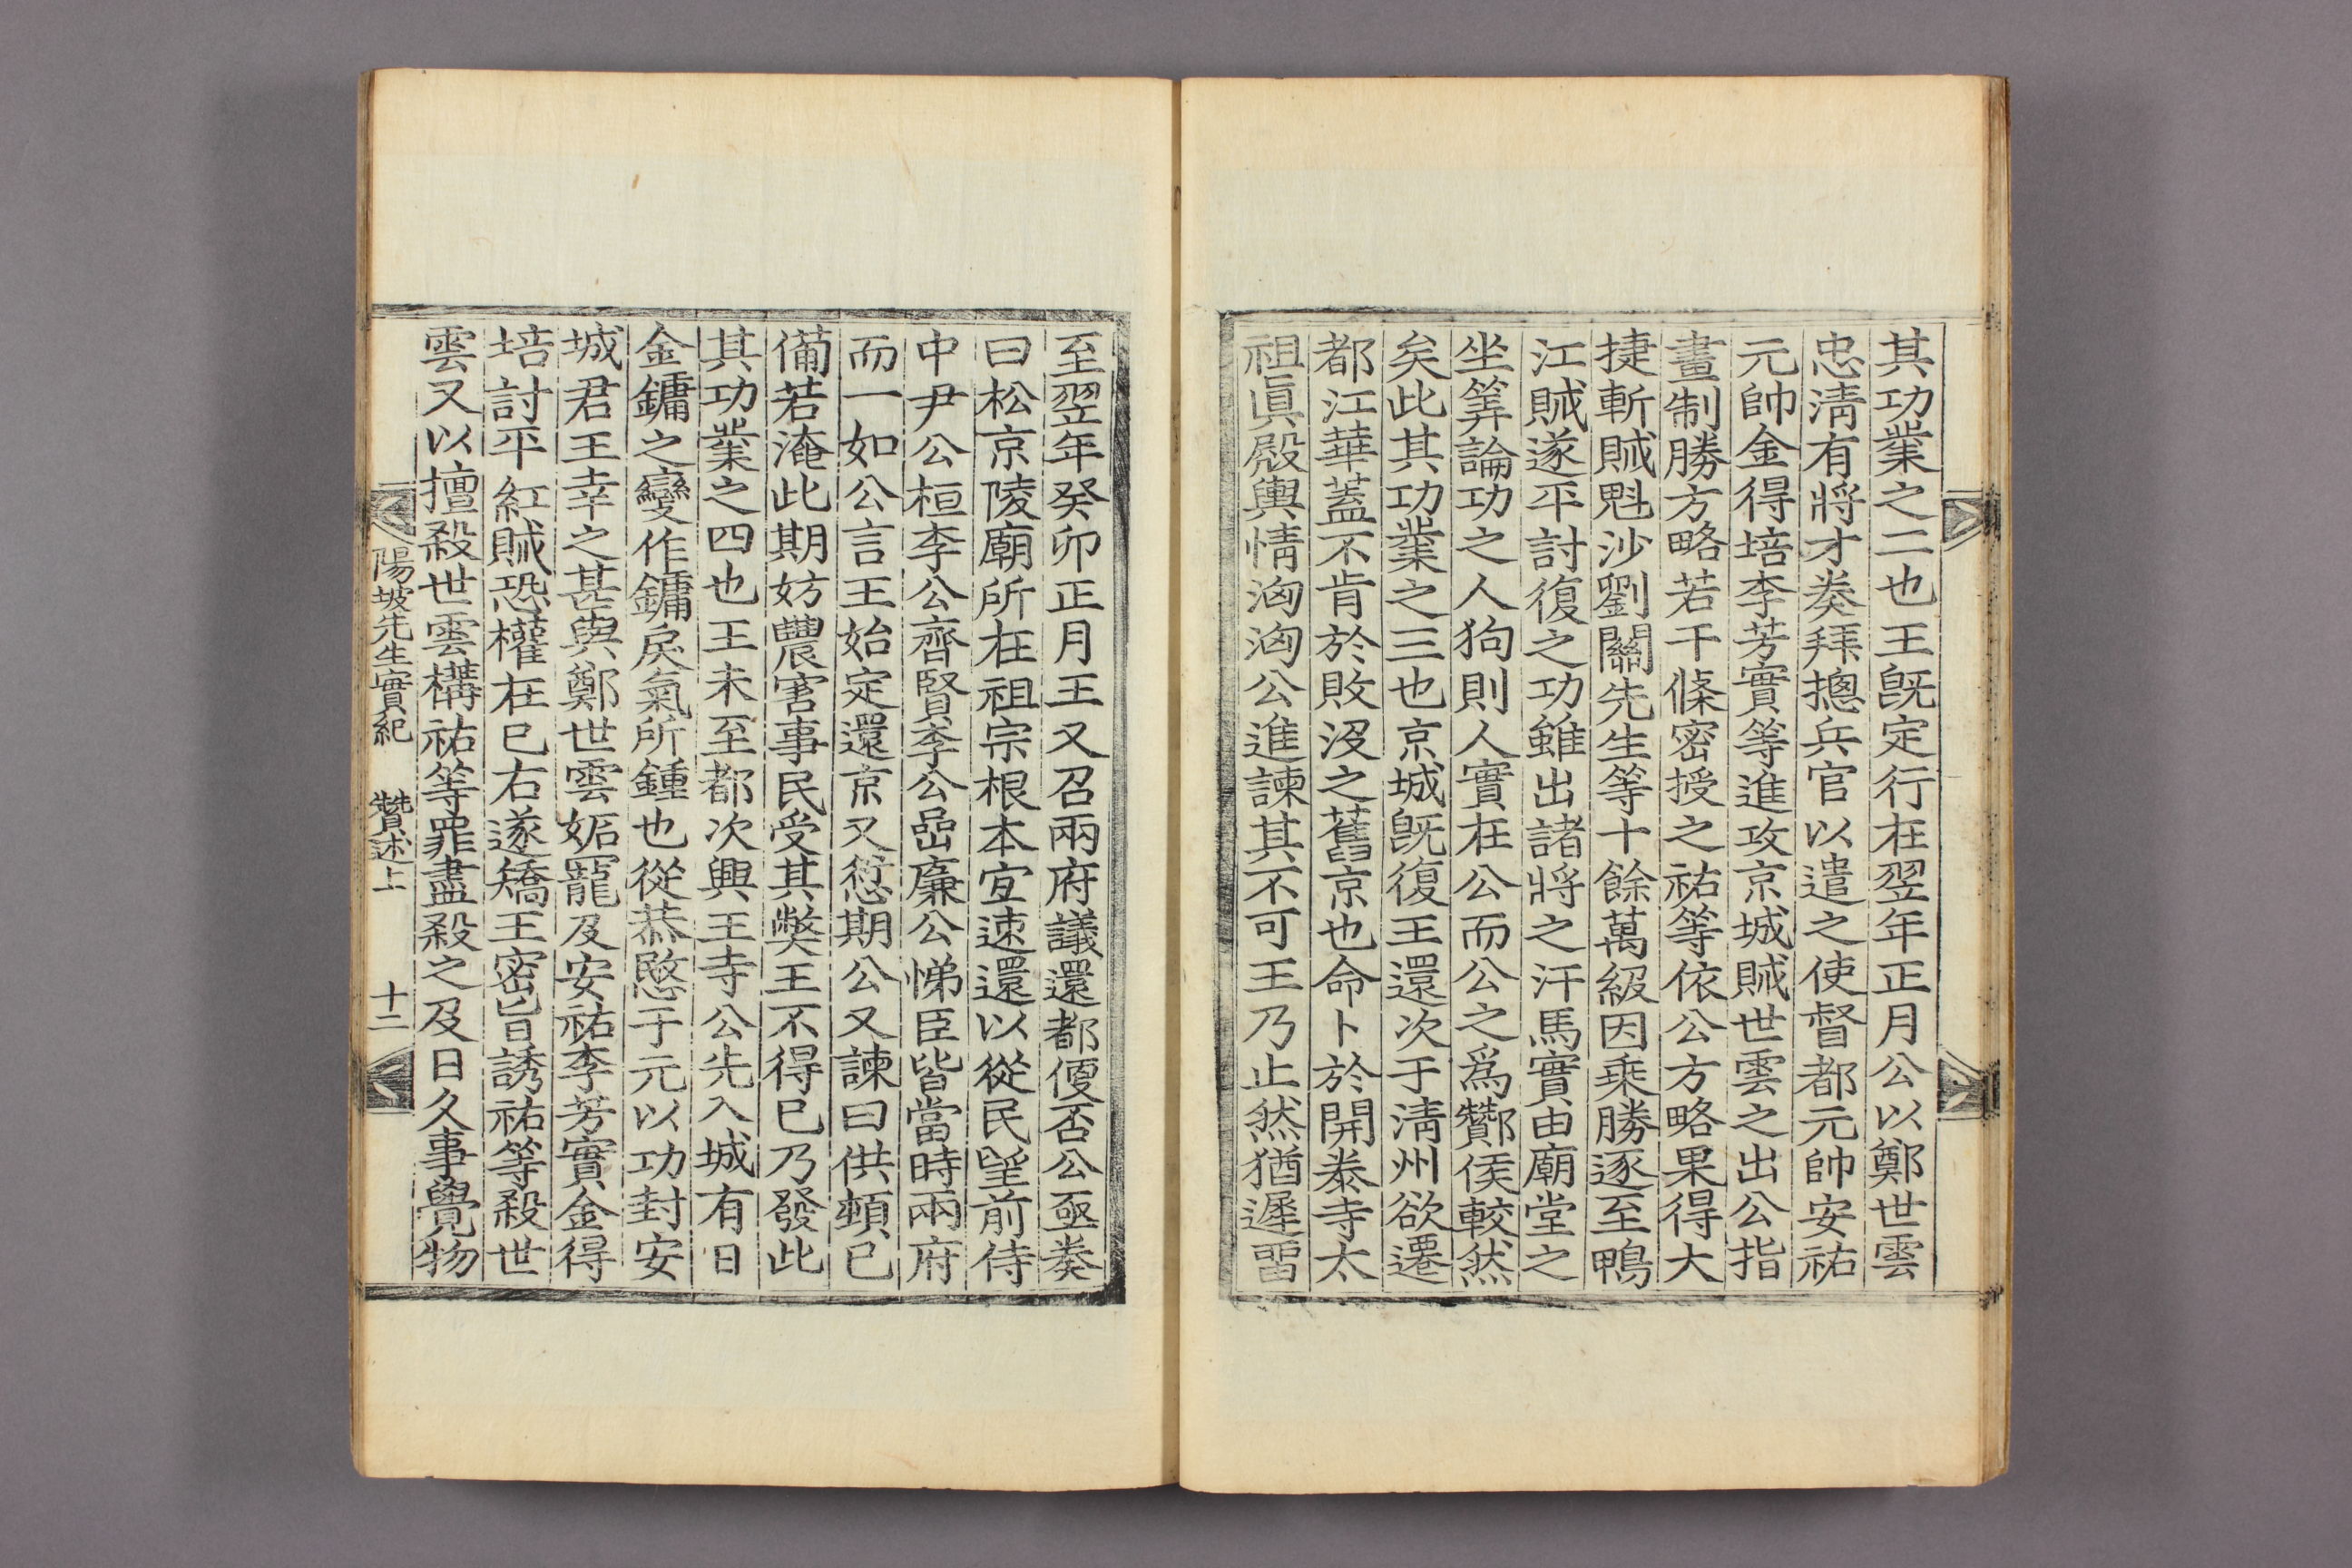 其功業之二也王旣定行在翌年正月公以鄭世雲
忠淸有將才奏拜摠兵官以遣之使督都元帥安祐
元帥金得培李芳實等進攻京城賊世雲之出公指
畫制勝方略若干條密授之祐等依公方略果得大
捷斬賊魁沙劉關先生等十餘萬級因乘勝逐至鴨
江賊遂平討復之功雖出諸將之汗馬實由廟堂之
坐筭論功之人狗則人實在公而公之爲酇侯較然
矣此其功業之三也京城旣復王還次于淸州欲遷
都江華蓋不肯於敗沒之舊京也命卜於開泰寺太
祖眞殿輿情洶洶公進諫其不可王乃止然猶遲畱
至翌年癸卯正月王又召兩府議還都便否公亟奏
曰松京陵廟所在祖宗根本宜速還以從民望前侍
中尹公桓李公齊賢李公嵒廉公悌臣皆當時兩府
而一如公言王始定還京又愆期公又諫曰供頓已
備若淹此期妨農害事民受其弊王不得已乃發此
其功業之四也王未至都次興王寺公先入城有日
金鏞之變作鏞戾氣所鍾也從恭愍于元以功封安
城君王幸之甚與鄭世雲妬寵及安祐李芳實金得
培討平紅賊恐權在已右遂矯王密旨誘祐等殺世
雲又以擅殺世雲構祐等罪盡殺之及日久事覺物
陽坡先生實紀 贊述上 十二